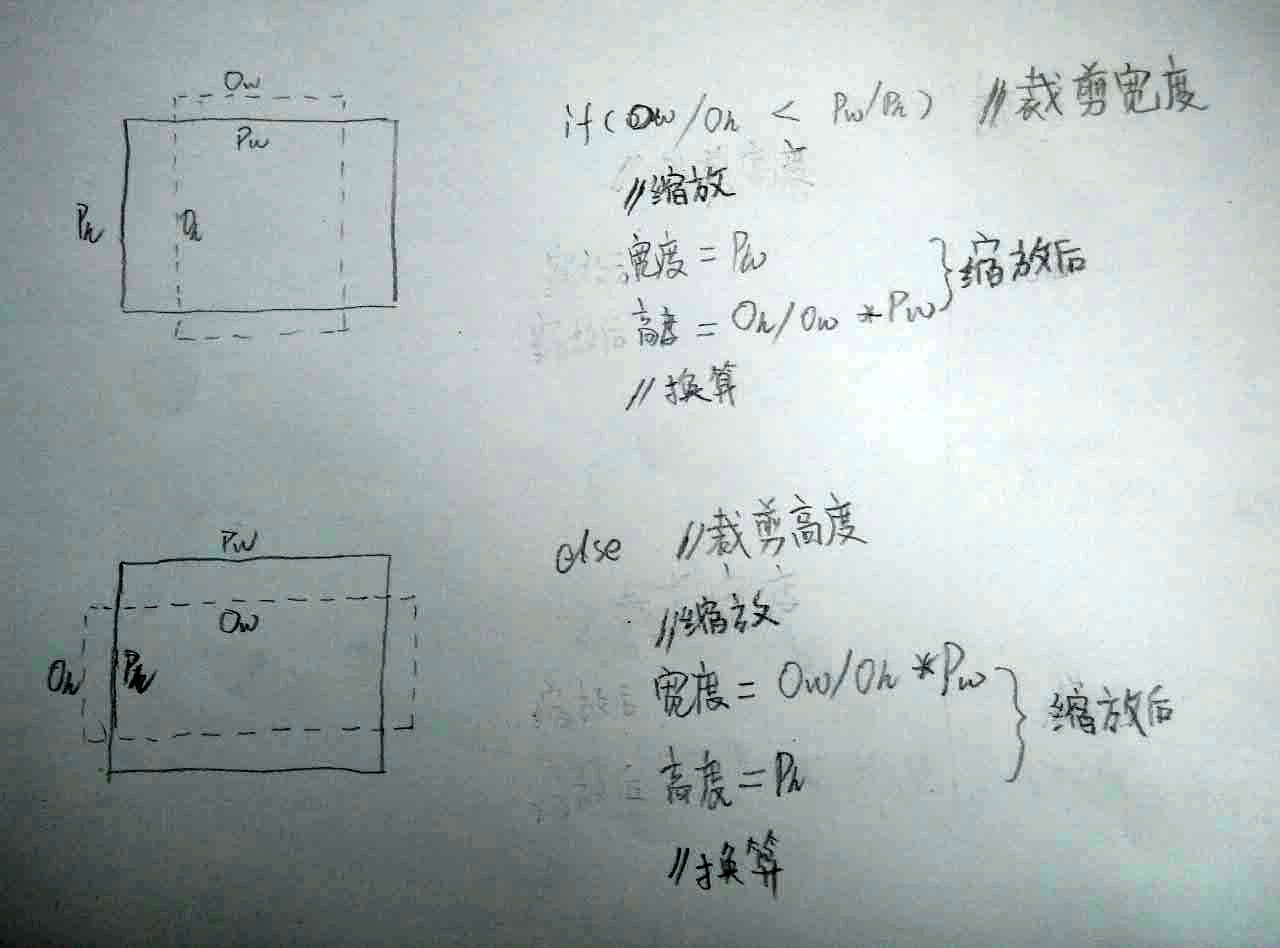 Ow
Pw
Ph
Oh
if(Ow/Oh < Pw/Ph) //裁剪宽度
//缩放
宽度 = Pw
高度 = Oh/Ow *Pw
}缩放后
//换算
Pw
Ow
Oh
Ph
else //裁剪高度
//缩放
宽度 = Ow/Oh *Pw
高度 = Ph
}缩放后
//换算